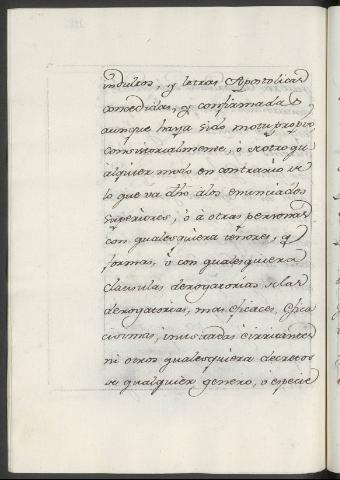 indultos, y letras Apostolicas
concedidas, y confirmadas
aunque haya sido motu proprio,
consistorialmente, ó de otro qu-
alquier modo en contrario de
lo que va dho a los enunciados
superiores, ó á otras personas
con qualesquiera tenores, y
formas, ó con qualesquiera
clausulas derogatorias de las
derogatorias, mas eficaces, efica
cisimas, inusitadas é irritantes
ni otros qualesquiera decretos
de qualquier genero, ó especie